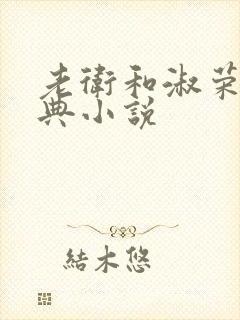 老衛和淑荣
典小説
結木悠